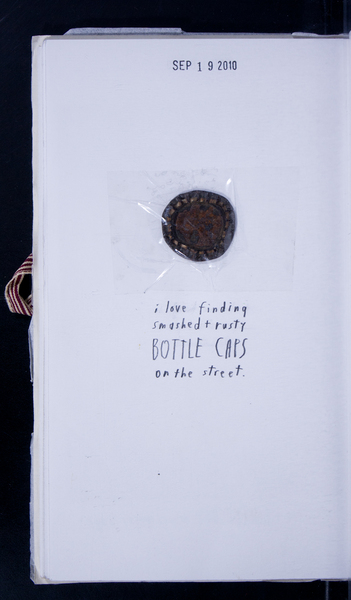 SEP 19 2010
i love finding
smashed + rusty
BOTTLE CAPS
on the street.